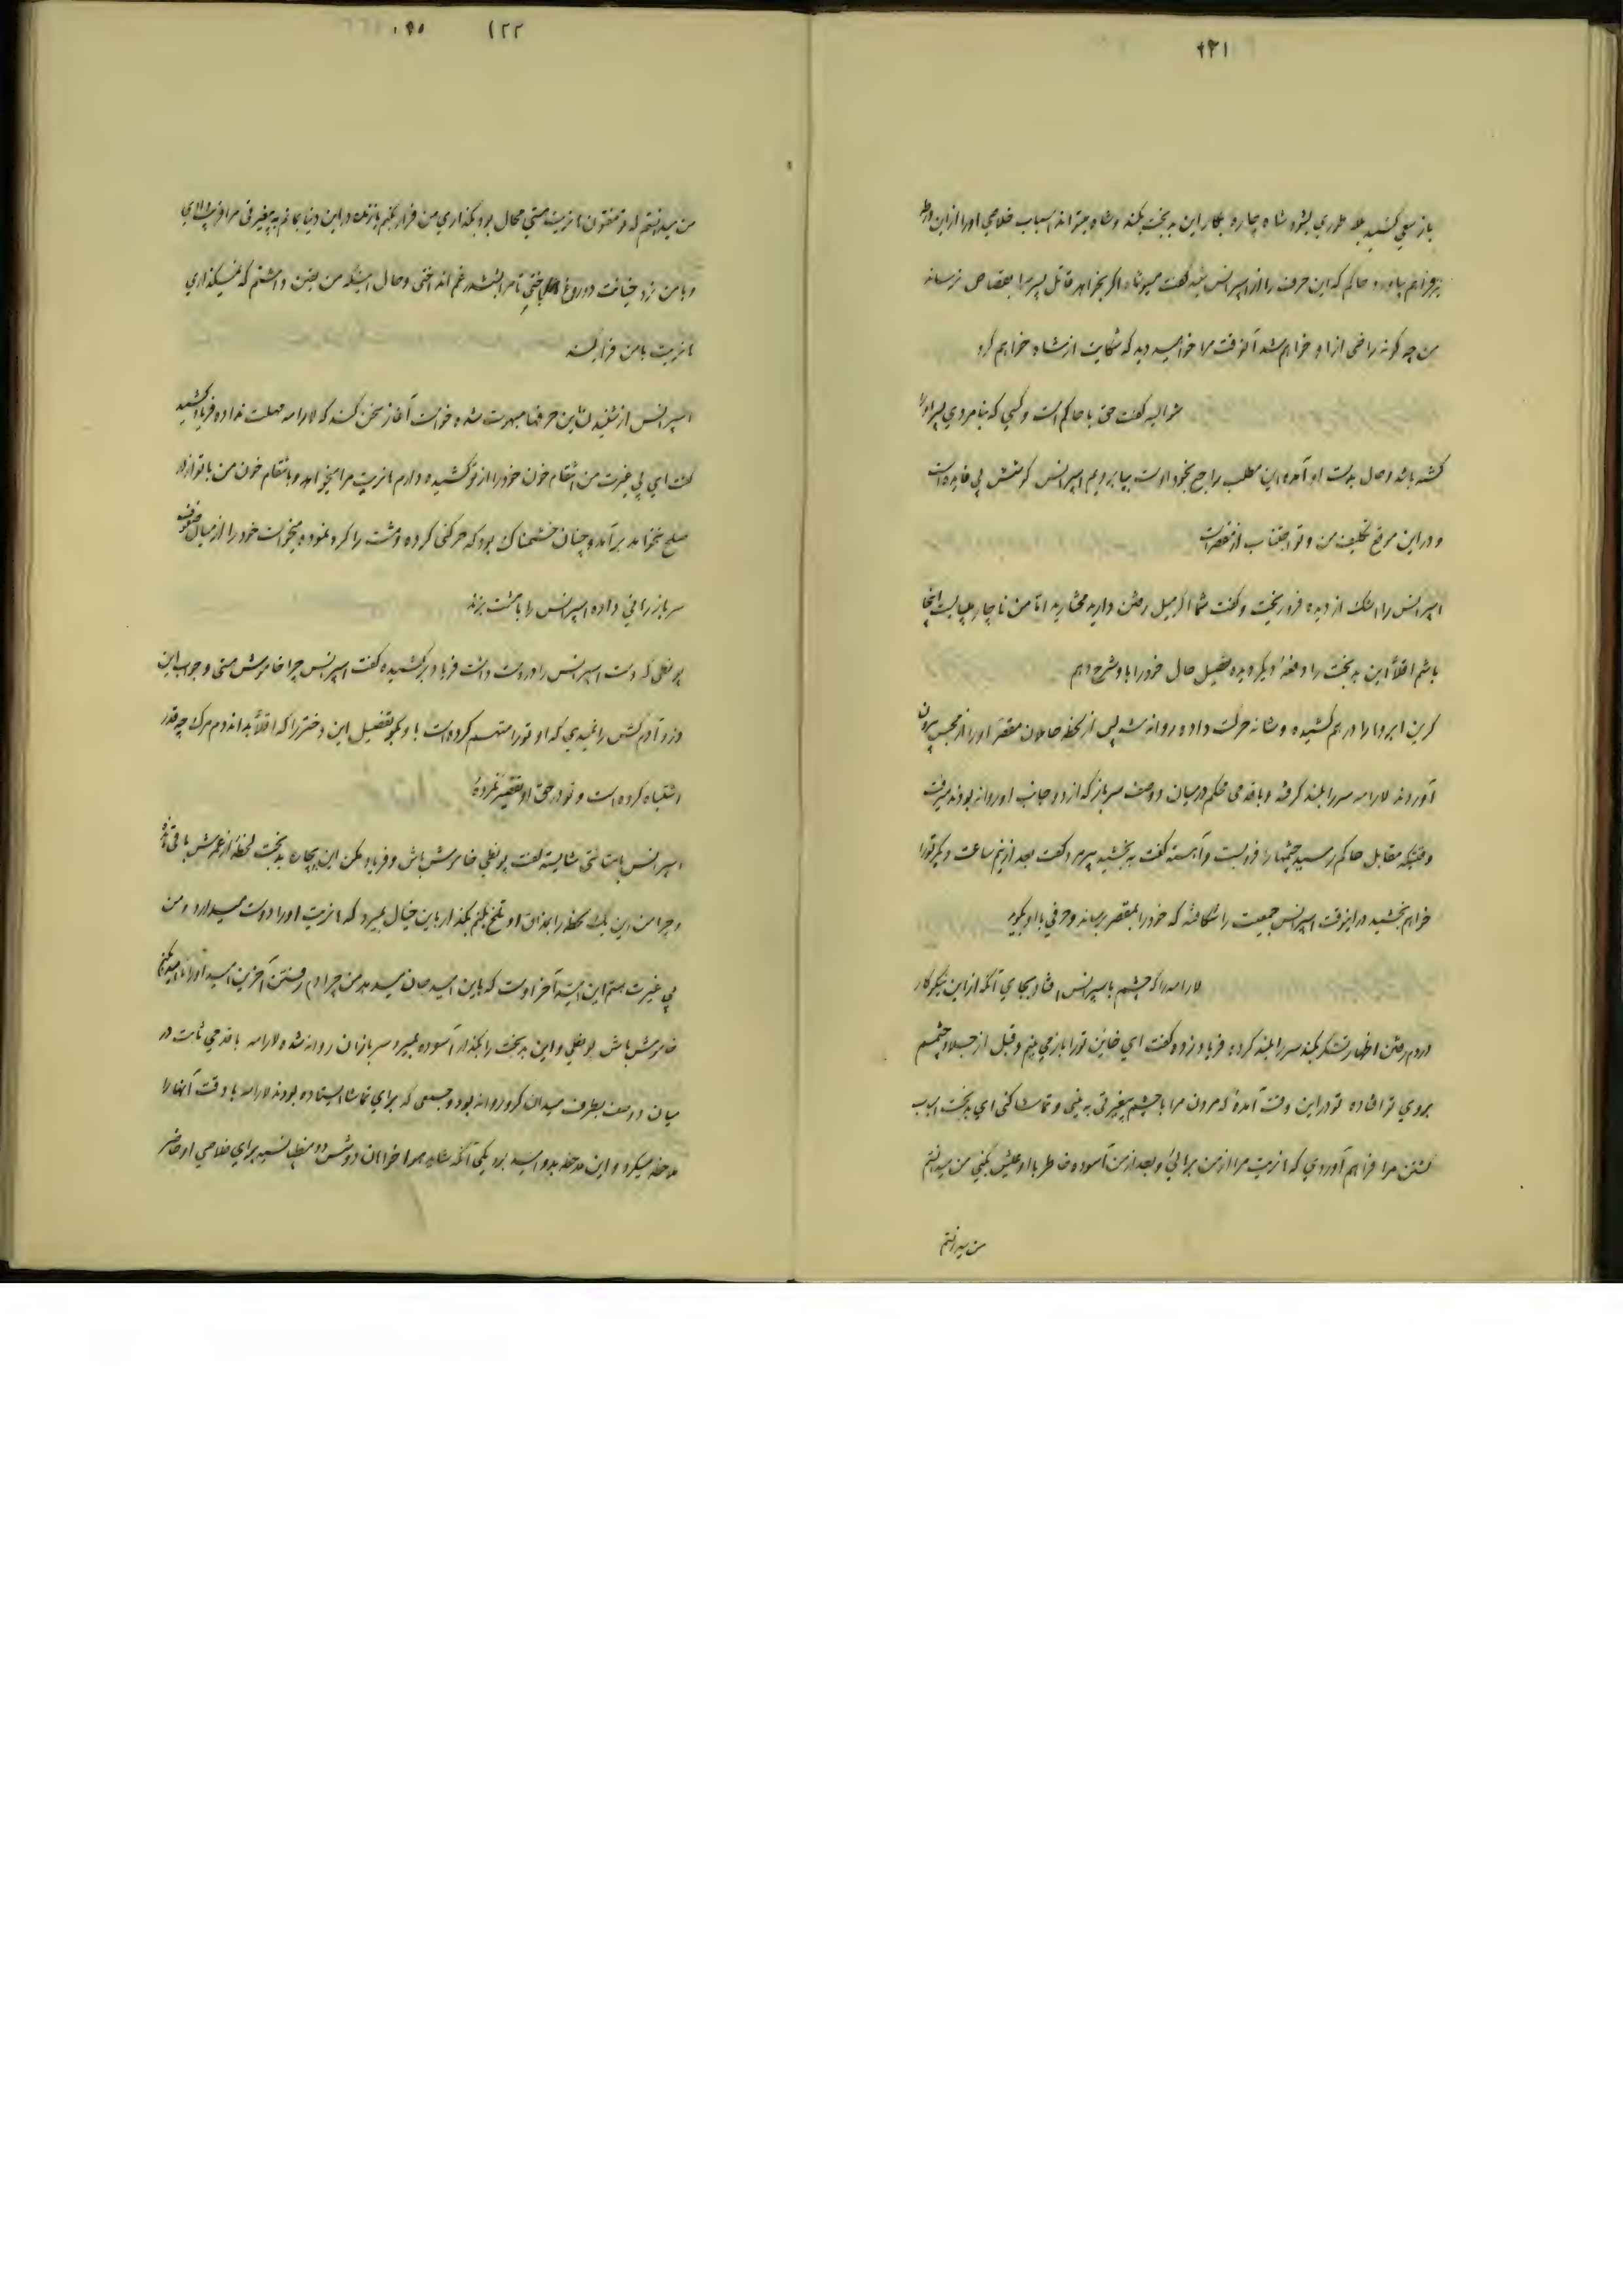 ۱۲۱
باز سعی کنید بلکه طوری بشود شاه چاره بکار این بدبخت بکند و شاه میتواند اسباب خلاصی او را از این ورطه
فراهم بیاورد حاکم که این حرف را از اسپرانس شنید گفت مسیو شاه اگر بخواهد قاتل پسر مرا بقصاص نرساند
من چه گونه راضی از او خواهم شد آنوقت مرا خواهید دید که شکایت از شاه خواهم کرد
شوالیه گفت حق با حاکم است و کسی که بنامردی پسر او را
کشته باشد و حال بدست او آمده این مطلب راجع بخود اوست بیا برویم اسپرانس کوشش بی فایده است
و در این موقع تکلیف من و تو اجتناب از مقصر است
اسپرانس را اشک از دیده فرو ریخت و گفت شما اگر میل رفتن دارید مختارید اما من ناچار میبایست اینجا
باشم اقلاً این بدبخت را دفعهٔ دیگر دیده تفصیل حال خود را باو شرح دهم
کرین ابروها را درهم کشیده و شانه حرکت داده روانه شد پس از لحظه حاملان مقصر او را از محبس بیرون
آوردند لارامه سر را بلند کرفته و باقدمی محکم در میان دو صف سرباز که از دو جانب او روانه بودند میرفت
وقتیکه مقابل حاکم رسید چشمها را فرو بست و آهسته گفت به بخشید پیرمرد گفت بعد از نیم ساعت دیگر تو را
خواهم بخشید در اینوقت اسپرانس جمعیت را شکافته که خود را بمقصر برساند و حرفی با او بگوید
لارامه را که چشم باسپرانس افتاد بجای آنکه از این نیکو کار
در دم رفتن اظهار تشکر بکند سر را بلند کرده فریاد زد و گفت ای خاین تو را باز می بینم و قبل از جلاد چشمم
بروی تو افتاده تو در این وقت آمدهٔ که مردن مرا با چشم بیغیرتی به بینی و تماشا کنی ای بدبخت اسباب
کشتن مرا فراهم آوردی که هانریت مرا از من بربائی و بعد از من آسوده خاطر با او عیش بکنی من میدانستم
من میدانستم
۱۲۲
من میدانستم که تو مفتون هانریت هستی محال بود بکذاری من فرار بکنم یا زنده در این دنیا بمانم به بیغیرتی مرا فریب دادی
و با من نرد خیانت و دروغ باختی تا مرا بشد غم انداختی و حال آنکه من یقین داشتم که نمیکذاری
هانریت با من فرار بکند
اسپرانس از شنیدن این حرفها مبهوت شده خواست آغاز سخن کند که لارامه مهلت نداده فریاد کشید
گفت ای بی غیرت من انتقام خون خود را از تو کشیده دارم هانریت مرا میخواهد و بانتقام خون من با تو از در
صلح نخواهد برآمد و چنان خشمناک بود که حرکتی کرده مشت را کره نموده میخواست خود را از میان صفوف
سرباز رهائی داده اسپرانس را با مشت بزند
پونطی که دست اسپرانس را در دست داشت فریاد برکشیده گفت اسپرانس چرا خاموش هستی و جواب این
دزد آدم کش را نمیدی که او تو را متهم کرده است باو بگو تفصیل این دختر را که اقلاً بداند دم مرگ چه قدر
اشتباه کرده است و تو در حق او تقصیر نکردهٔ
اسپرانس با متانتی شایسته گفت پونطی خاموش باش و فریاد مکن این بیچاره بدبخت لحظهٔ از عمرش باقی مانده
و چرا من این یک لحظه را بمذاق او تلخ بکنم بکذار باین خیال بمیرد که هانریت او را دوست میدارد و من
بی غیرت هستم این امید آخر اوست که باین امید جان میدهد من چرا دم رفتن آخرین امید او را نا امید بکنم
خاموش باش پونطی و این بدبخت را بگذار آسوده بمیرد سربازان روانه شده لارامه با قدمی ثابت در
میان دو صف بطرف میدان کرو روانه بود و جمعی که برای تماشا ایستاده بودند لارامه با دقت آنها را
ملاحظه میکرد و این ملاحظه بدو امید بود یکی آنکه شاید هوا خواهان دوشس دو منطپانسیه برای خلاصی او حاضر